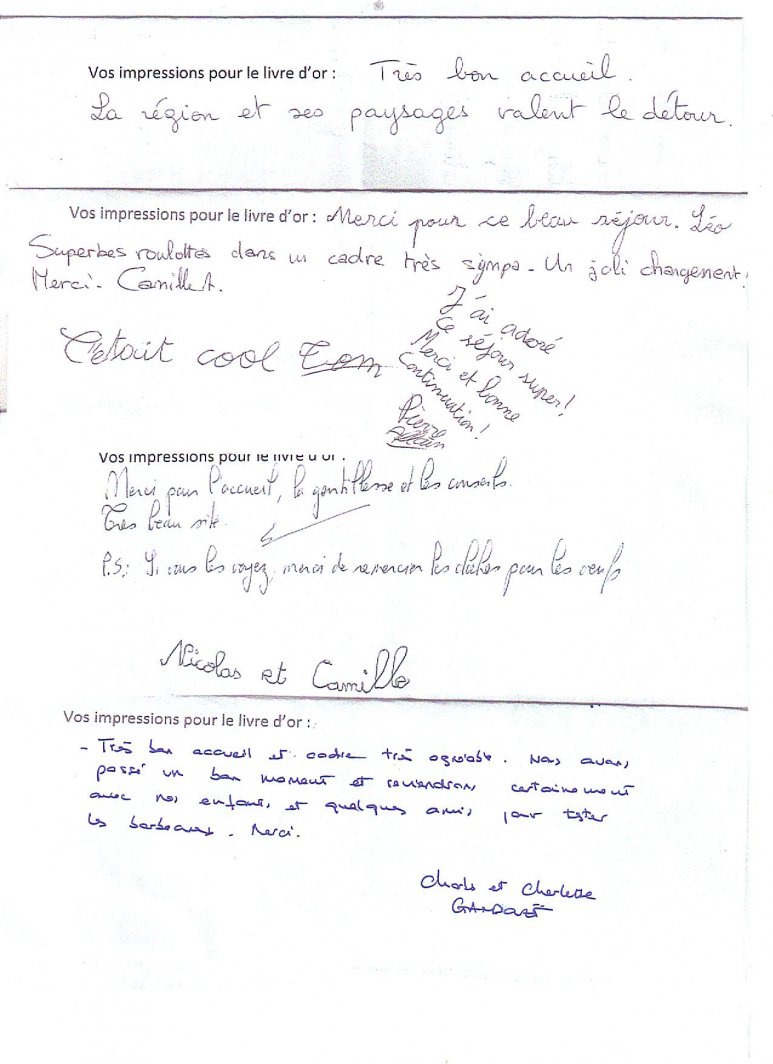 Vos impressions pour le livre d'or : Très bon accueil.
La région et ses paysages valent le détour.
Vos impressions pour le livre d'or : Merci pour ce beau séjour. Léo
Superbes roulottes dans un cadre très sympa - Un joli changement.
Merci - Camille
C'etait cool Tom
J'ai adoré
Ce séjour super!
Merci et bonne
Continuation!
Pierre
Vos impressions pour le livre d'or :
Merci pour l'accueil, la gentillesse et les conseils.
Très beau site.
P.S.: Si vous les voyez, merci de remercier les pour les oeufs
Nicolas et Camille
Vos impressions pour le livre d'or :
- Très bon accueil et cadre très agréable. Nous avons
passé un bon moment et reviendrons certainement
avec nos enfants, et quelques amis pour tester
les barbeaux. Merci.
et Charlette